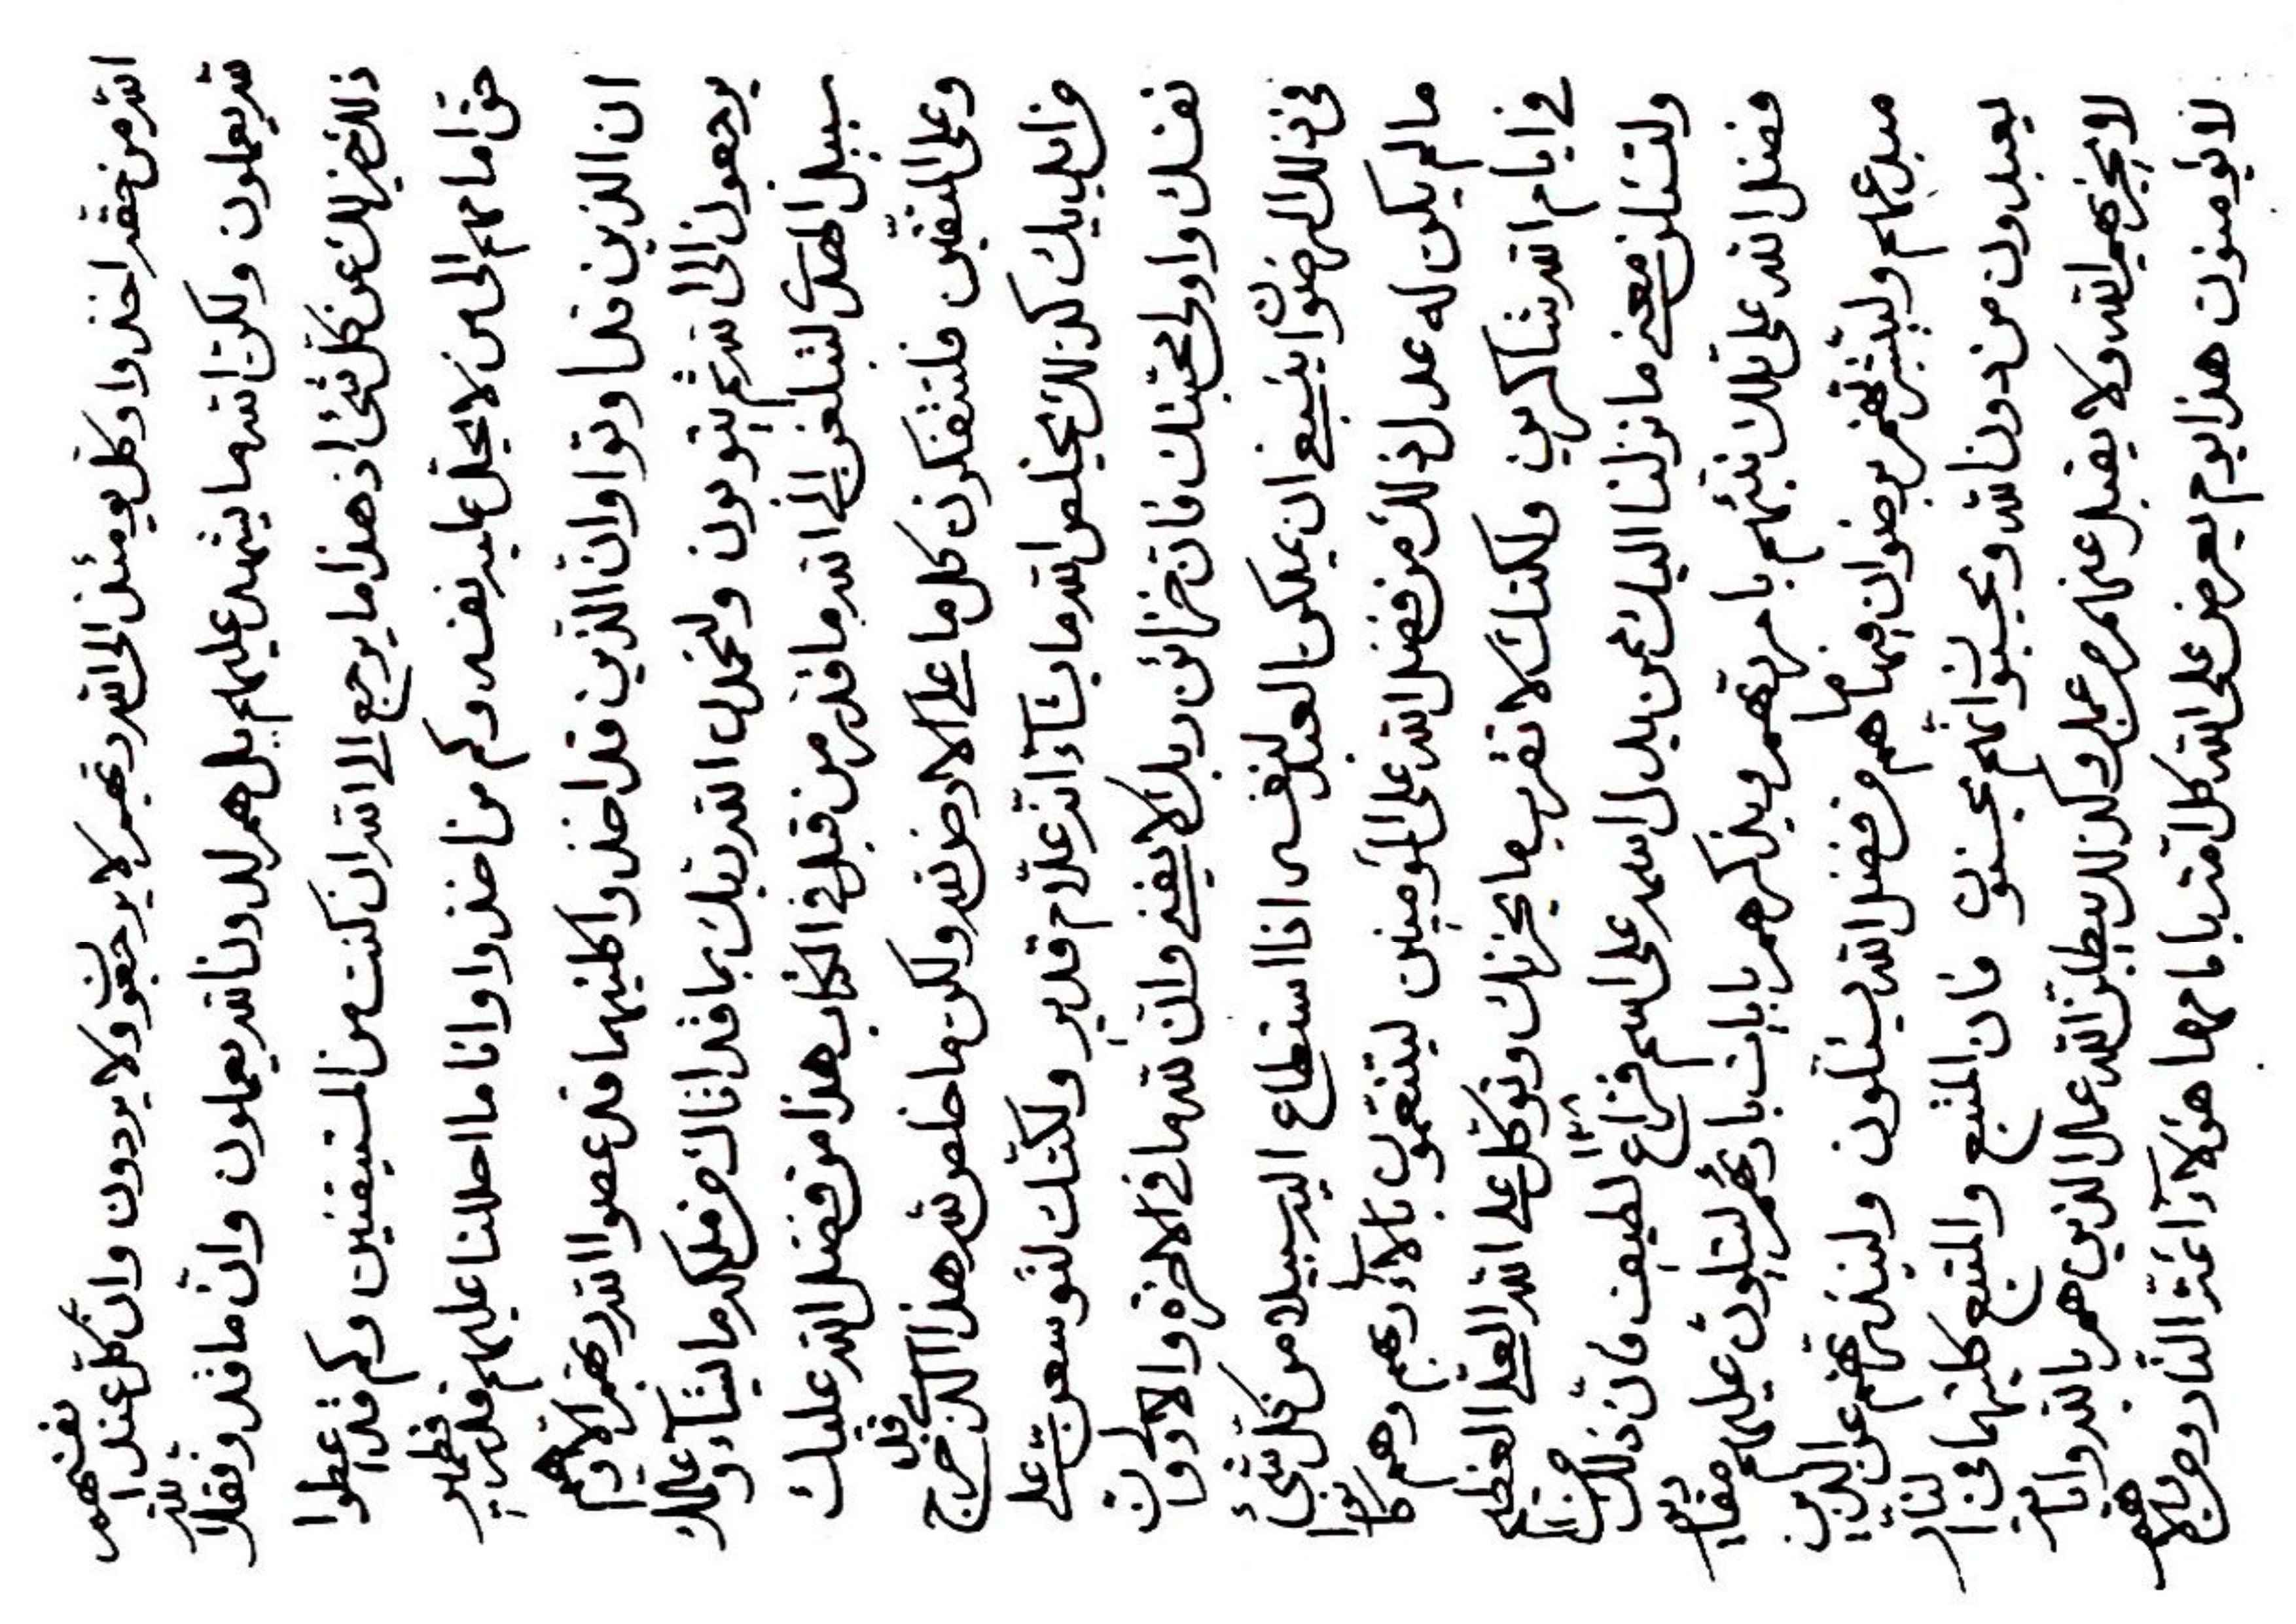 الله من حقد اخذوا وكل يومئذ الى الله ربهم لا يرجعون ولا يردون وان كل عند انفسهم
لله يعملون ولكن الله ما يشهد عليهم بل هم لدون الله يعملون وان ما قدر وفضلا لله
ذلك خير لك عن كل شئ اذ هذا ما يرجع الى الله ان كنت من المستيقنين وكم قد اعطوا
حق امامهم الى من لا يحل عليه نفسه وكم من اخذوا وانا ما احللنا عليهم قدر قطمير
ان الذين قد اوتوا وان الذين قد اخذوا كليهما قد عصوا الله ربهم الا وهم
يرجعون الى الله ثم يتوبون ولتحمدن الله ربك بما قد اتاك من ملكه ما يشاء وعالملك
سبيل الهدى لتبلغن الى الله ما قدر من قبل في الكتاب هذا من فضل الله عليك
وعلى المتقين فلتتفكرن كل ما على الارض لله ولكن ما خلص لله هذا الذي قبل خرج
من ايدييك كذلك يخلص الله ما يشاء انه علام قدير ولكنك لتوسعن على
نفسك واولى محبتك فان خزائن ربك لا يفنى وان لله ما في الاخرة والاولى وان
في ذلك الرضوان ينبغي ان يملكن العبد لنفسه اذا استطاع اليه سبيلا من كل شئ
ما لم يكن له عدل ذلك من فضل الله على المؤمنين ليتنعمون بالاء ربهم وهم كانوا
في ايام الله شاكرين ولكنك لا تقرب ما يحزنك وتوكل على الله العلي العظيم
ولتسئلن معنى ما نزلنا اليك عمن بدل اسمه على اسم فزاع لطيف فان ذلك من
فضل الله على تلك نبئهم بامر ربهم ويذكرهم بايات بارئهم ليتلون عليهم مقادير
مبدعهم وليبشرنهم برضوان فيما هم من فضل الله يسئلون ولينذرنهم عن الذين
يعبدون من دون الله ويحسبون انهم محسنون فان المتبع والمتبع كليهما في النار
لا يجزيهم الله ولا يقبل عنهم من عمل وكذلك يبطلن الله عمل الذين هم بالله واياته
لا يؤمنون هذا يوم يعرض على الله كل امة باماهها هؤلاء ائمة النار